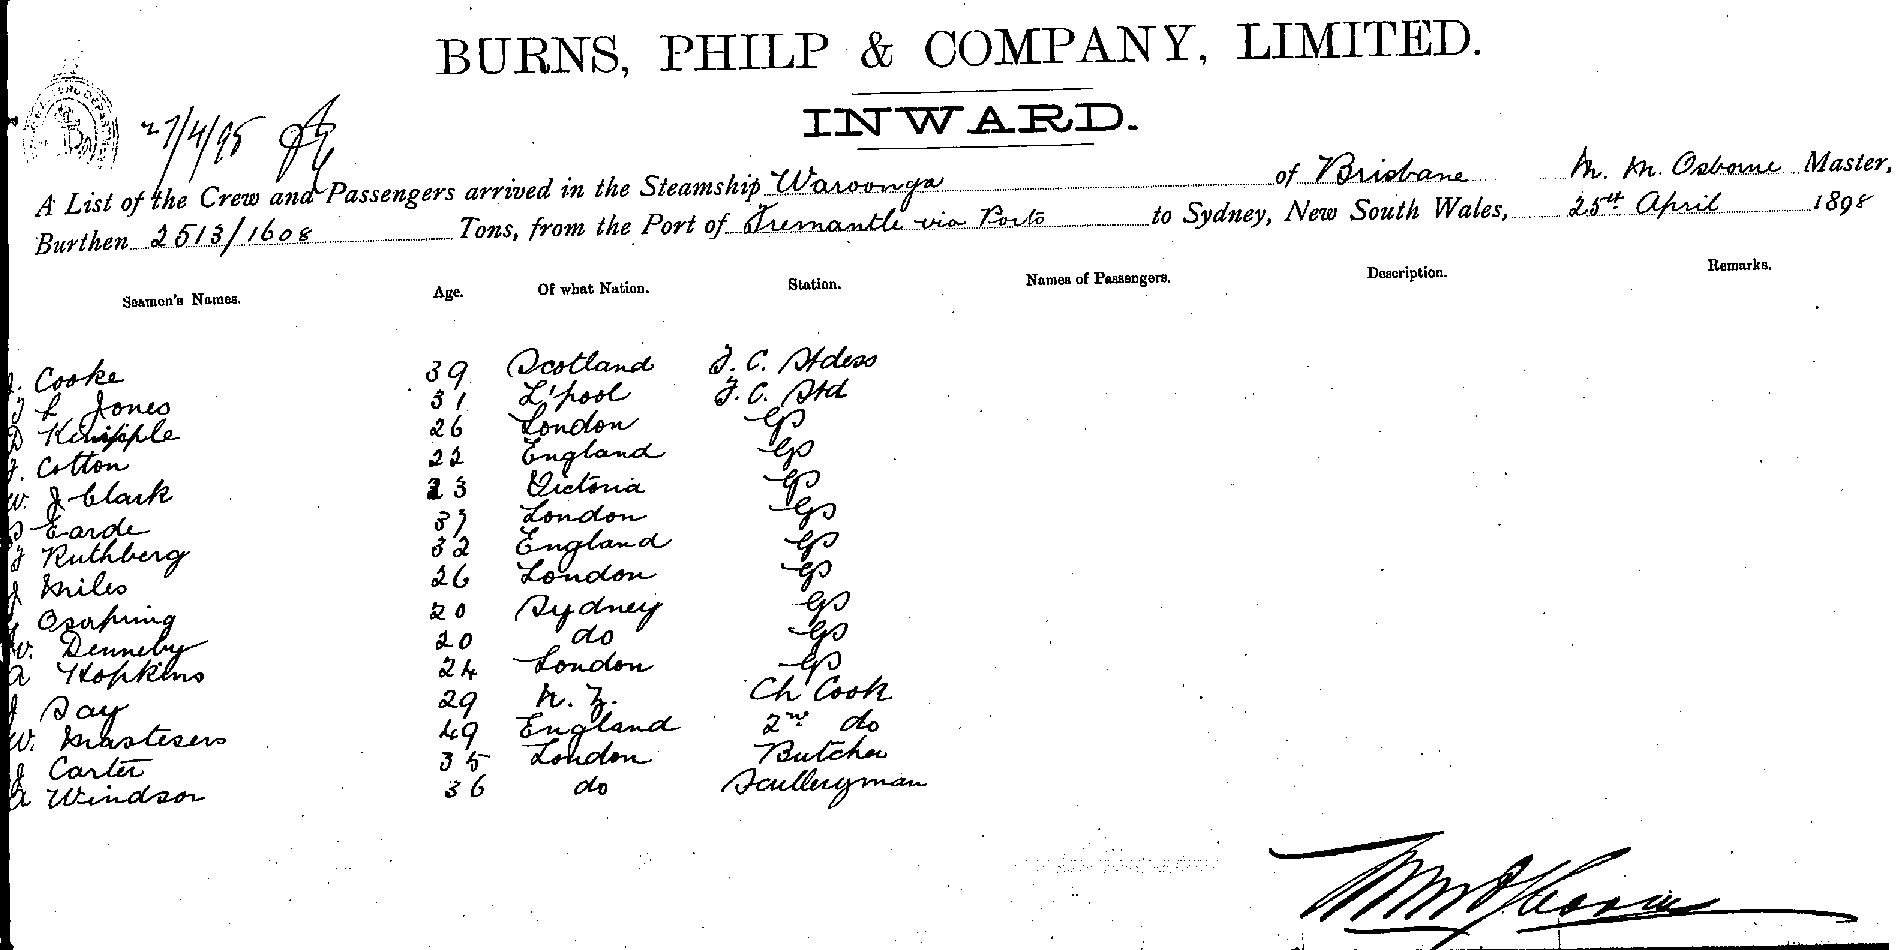 BURNS, PHILP & COMPANY, LIMITED.
INWARD.
27/4/95
A List of the Crew and Passengers arrived in the Steamship Waroonga of Brisbane M. M. Osborne Master,
Burthen 2513/1608 Tons, from the Port of Fremantle via Ports to Sydney, New South Wales, 25th April 1898
Seamen's Names. Age. Of what Nation. Station. Names of Passengers. Description. Remarks.
J. Cooke 39 Scotland F. C. Stdess
F L Jones 31 L'pool F. C. Std
D Kehipple 26 London
F. Cotton 22 England
W. J. Clark 23 Victoria
S Earde 31 London
F Ruthberg 32 England
J Miles 26 London
Osapring 20 Sydney
W. Denneby 20 do
A Hopkins 24 London
J Day 29 N. Z. Ch Cook
W. Mastesers 49 England 2nd do
J Carter 35 London Butcher
A Windsor 36 do Sculleryman